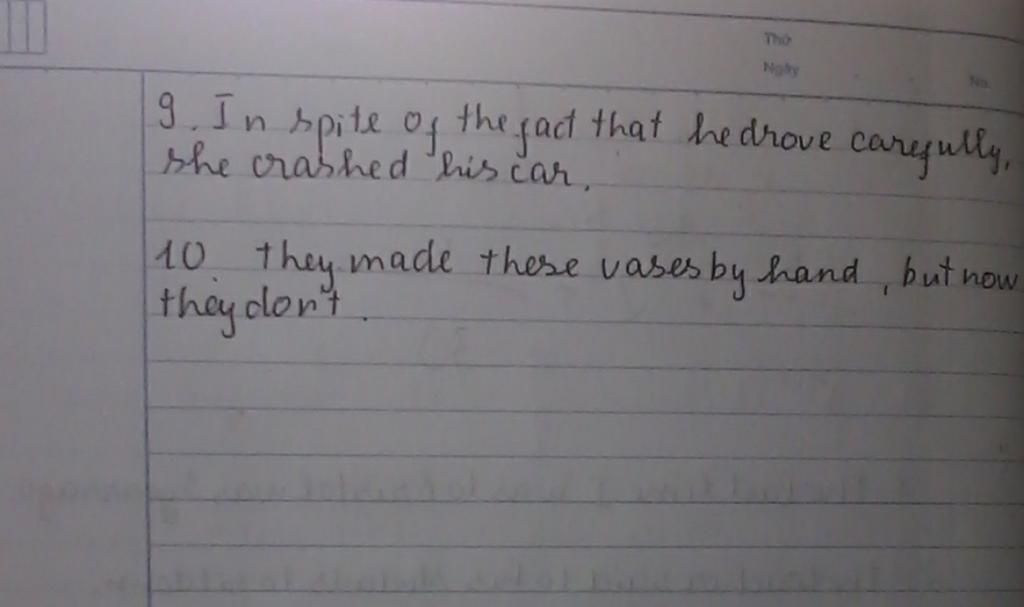 Thứ
Ngày
No.
9. In spite of the fact that he drove carefully,
she crashed his car.
10. they made these vases by hand, but now
they don't.